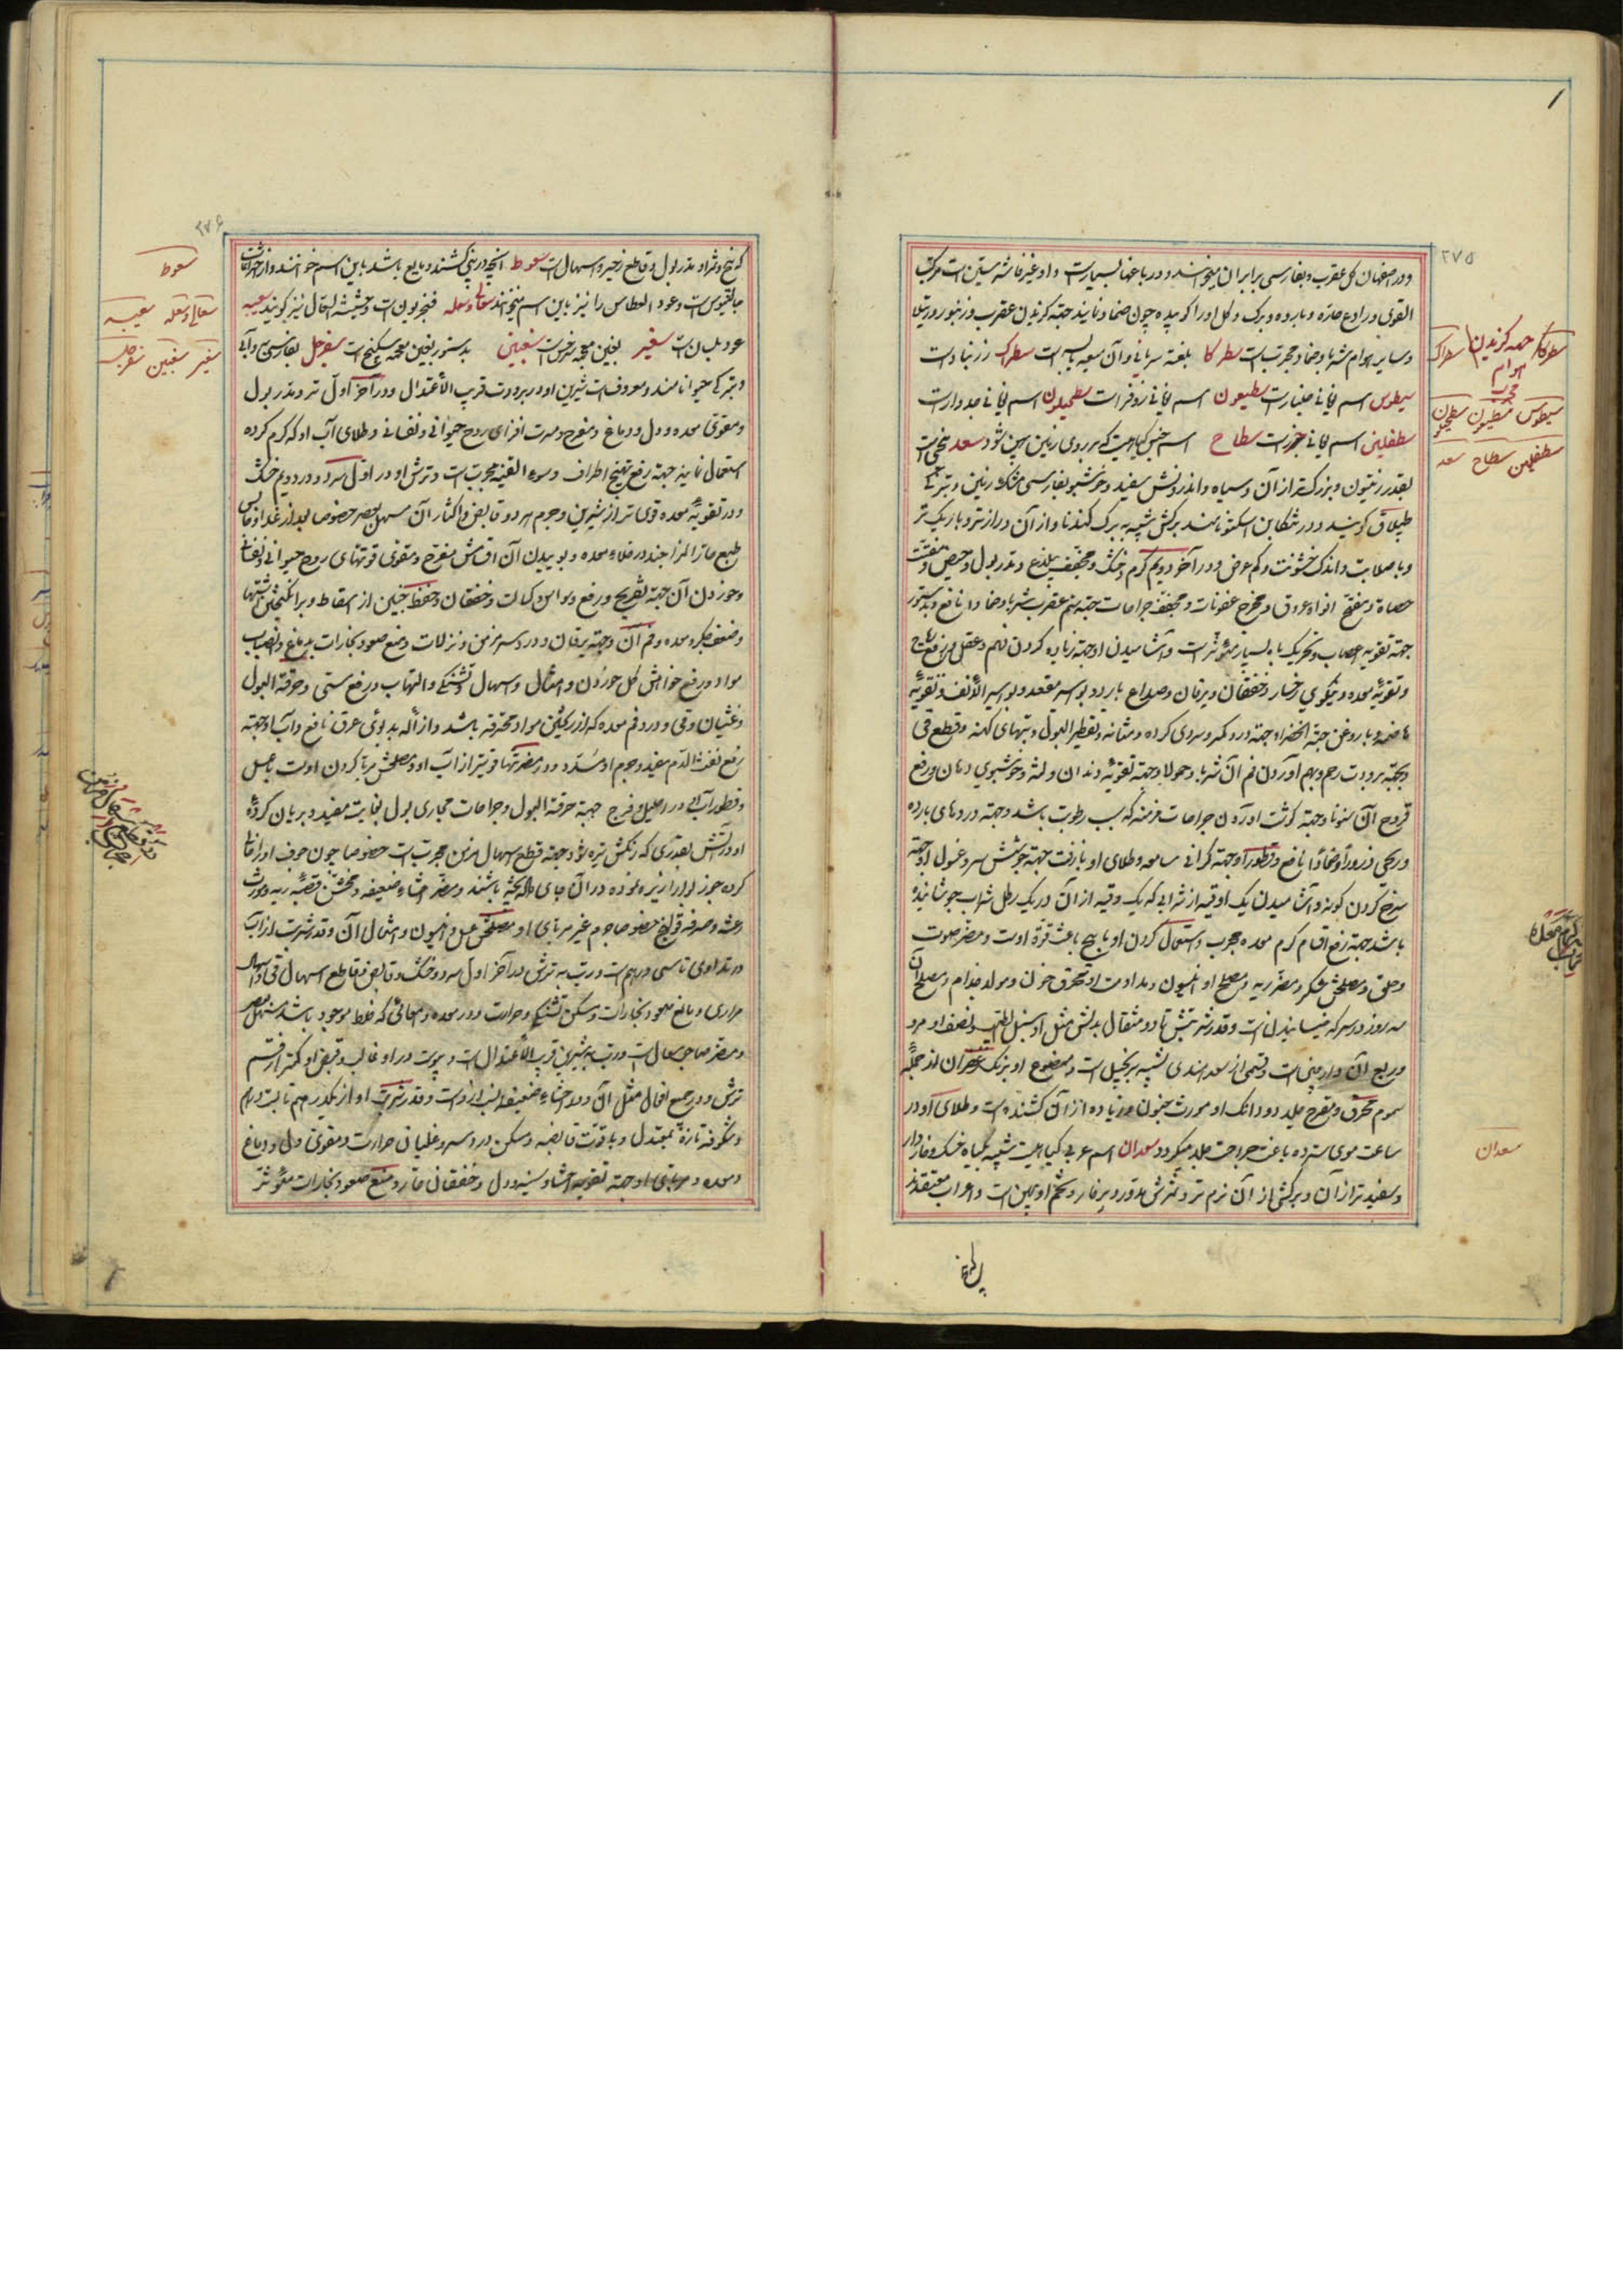 ۲۷۵
ودر اصفهان کل عقرب وبفارسی برابران میخوانند ودر باغها بسیار است واو غیر فاشرستین است مرکب
القوی ورادع حاره وبارده وبرک وکل اورا کوبیده چون ضماد نمایند جهة کزیدن عقرب وزنبور ورتیلا
وسایر هوام شربا وضمادا مجربست سطرکا بلغة سریانی وآن میعه یابسه است سطرک زرنباد است
سیطوس اسم یونانی خلنبار است سطیعون اسم یونانی زوفرا است سطمیلون اسم یونانی جدوار است
سطفلین اسم یونانی جزر است سطاح اسم جنس کیاهیست که بر روی زمین پهن شود سعد بیخی است
بقدر زیتون وبزرکتر از آن وسیاه واندرونش سفید وخوشبو بفارسی مشک زمین وبترکی
طپلاق کویند ودر تنکابن اسکتو نامند برکش شبیه ببرک کندنا واز آن درازتر وباریکتر
وباصلابت واندک خشونت وکم عرض ودر آخر دویم کرم وخشک ومجفف بیلذع ومدر بول وحیض ومفتت
حصاة ومفتح افواه عروق ومخرج عفونات ومجفف جراحات جهة سم عقرب شربا وضمادا نافع وبدستور
جهة تقویه اعصاب وتحریک باه بسیار مؤثر است وآشامیدن او جهة زیاده کردن فهم وعقل ورفع ریاح
وتقویه معده ونیکوی رخسار وخفقان ویرقان وصداع بارد وبواسیر مقعد وبواسیر الأنف وتقویه
هاضمه وبا روغن حبة الخضرا جهة درد کمر وسردی کرده ومثانه وتقطیر البول وتبهای کهنه وقطع قی
وبجهة برودت رحم وبهم آوردن فم آن شربا وحمولا وجهة تقویه دندان ولثه وخوشبوی دهان ورفع
قروح آن سنونا وجهة کوشت آوردن جراحات مزمنه که سبب رطوبت باشد وجهة دردهای بارده
وریحی ذرورا وضمادا نافع وقطورا وجهة کرانی سامعه وطلای او با زفت جهة جوشش سر وغسول او جهة
سرخ کردن کونه وآشامیدن یک اوقیه از شرابی که یک وقیه از آن در یک رطل شراب جوشانیده
باشند جهة رفع اقسام کرم معده مجرب واستعمال کردن او باهیج باعث قوة اوست ومضر صوت
وحلق ومصلحش شکر ومضر ریه ومصلح او انیسون ومداومت او محرق خون ومولد جذام ومصلح آن
سه روز در سرکه خیسانیدن است وقدر شربتش تا دو مثقال بدلش مثل او سنبل الطیب ونصف او مرو
وربع آن دارچینی است وقسمی از سعد هندی شبیه بزنجبیل است وممضوغ او برنک زعفران از جمله
سموم محرق ومقرح جلد ودودانک او مورث جنون وزیاده از آن کشنده است وطلای او در
ساعت موی سترده باعث جراحت جلد میکردد سعدان اسم عربی کیاهیست شبیه بکیاه خسک وخاردار
وسفیدتر از آن وبرکش از آن نرم تر وثمرش مدور وپرخار وتخم او پهن است واعراب معتقدند
سطرکا جهة کزیدن هوام مجرب سطراک
سیطوس سطیعون سطمیلون
سطفلین سطاح سعد
کرم معده
سعدان
۲۷۶
که بیخ وثمر او مدر بول وقاطع زحیر واسهال است سعوط آنچه در بینی کشند ومایع باشد باین اسم خوانند واز اختراعات
جالینوس است وعود العطاس را نیز باین اسم میخوانند سعالی وسعله فنجریون است وحشیشة السعال نیز کویند سعیبه
عود بلسان است سغیر بغین معجمه سرخس است سغبین بدستور بغین معجمه سکبینج است سفرجل بفارسی به وآبی
وبترکی حیوا نامند ومعروفست شیرین او در برودت قریب الأعتدال ودر آخر اول تر ومدر بول
ومقوی معده ودل ودماغ ومفرح ومسرت افزای روح حیوانی ونفسانی وطلای آب او که کرم کرده
استعمال نمایند جهة رفع تهیج اطراف وسوء القنیه مجربست وترش او در اول سرد ودر دویم خشک
ودر تقویه معده قوی تر از شیرین وجرم هر دو قابض واکثار آن مسهل بعصر خصوصا بعد از غذا وقابس
طبع حار المزاجند در خلاء معده وبوییدن آن اقسامش مفرح ومقوی قوتهای روح حیوانی ونفسانی
وخوردن آن جهة تفریح ورفع وسواس وکسالت وخفقان وحفظ جنین از اسقاط وبرانکیختن اشتها
وضعف جکر ومعده وفم آن وجهة یرقان ودرد سر مزمن ونزلات ومنع صعود بخارات بدماغ وانصباب
مواد ورفع خواهش کل خوردن وامثال واسهال وتشنکی والتهاب ورفع مستی وحرقة البول
وغثیان وقی ودرد فم معده که از ریختن مواد محترقه باشد وازاله بدبوئی عرق نافع وآب او جهة
رفع نفث الدم مفید وجرم او مسدد ودر مضرتها قویتر از آب او ومصلحش مربا کردن اوست باعسل
وقطور آب او در احلیل وفرج جهة حرقة البول وجراحات مجاری بول بغایت مفید وبریان کرده
او در آتش بقدری که رنکش تیره شود جهة قطع اسهال مزمن مجربست خصوصا چون جوف اورا خالی
کرده جوز بوا را ریزه نموده در آن جای داده پخته باشند ومضر احشاء ضعیفه ومخشن قصبه ریه ومورث
رعشه ومضر قولنج خصوصا جرم غیر مربای او مصلحش عسل وانیسون وامثال آن وقدر شربت از آب
در تداوی تا سی درهم است ورب به ترش در آخر اول سرد وخشک وقابض وقاطع اسهال قی واسهال
مراری ومانع صعود بخارات ومسکن تشنکی وحرارت ودر معده وامعائی که خلط موجود باشد مسهل بعصر
ومضر صاحب سعال است ورب به شیرین قریب الأعتدال است ویبوست در او غالب وقبض او کمتر از قسم
ترش ودر جمیع افعال مثل آن ودر احشاء ضعیفه انسب از اوست وقدر شربت او از یکدرهم تا بیست درهم
وشکوفه تازه معتدل وباقوت قابضه ومسکن درد سر وغلیان حرارت ومقوی دل ودماغ
ومعده ومربای او جهة تقویه احشا وسینه ودل وخفقان حار ومنع صعود بخارات مؤثر
سعوط
سعالی وسعله سعیبه
سغیر سغبین سفرجل